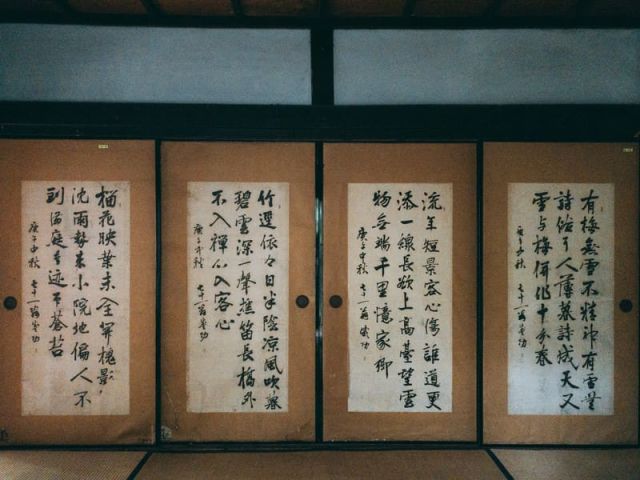 有梅無雪不精神有雪無
詩俗了人薄暮詩成天又
雪与梅併作十分春
庚子中秋 七十一翁
流年短景客心傷誰道更
添一線長欲上高臺望雲
物無端千里憶家鄉
庚子中秋 七十一翁
依々日半陰涼風吹暮
碧雲深一聲樵笛長橋外
不入禪心入客心
庚子中秋 七十一翁
榴花映葉未全開槐影
沈雨勢来小院地偏人不
到満庭鳥迹印蒼苔
庚子中秋 七十一翁